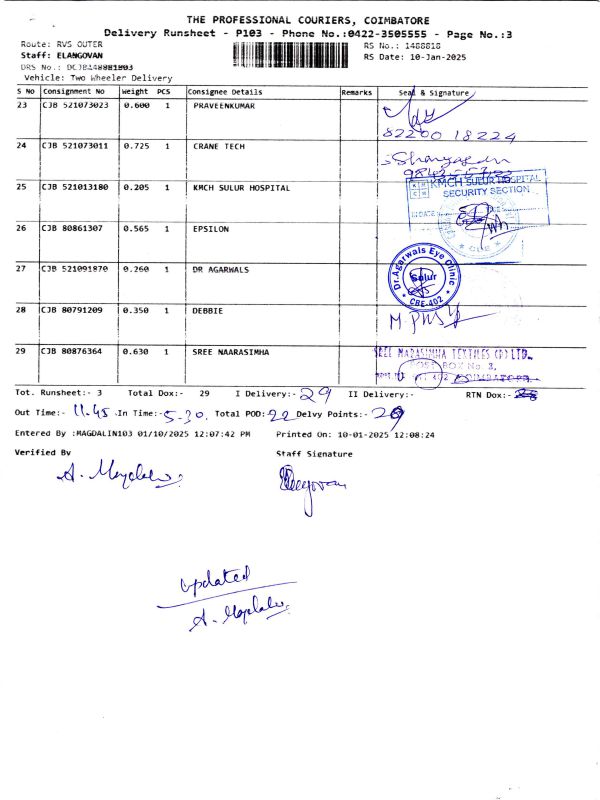 THE PROFESSIONAL COURIERS, COIMBATORE
Delivery Runsheet - P103 - Phone No.:0422-3505555 - Page No.:3
Route: RVS OUTER
RS No.: 1488818
Staff: ELANGOVAN
RS Date: 10-Jan-2025
DRS No.:
Vehicle: Two Wheeler Delivery
S No Consignment No Weight PCS Consignee Details Remarks Seal & Signature
23 CJB 521073023 0.600 1 PRAVEENKUMAR
82200 18224
24 CJB 521073011 0.725 1 CRANE TECH
25 CJB 521013180 0.205 1 KMCH SULUR HOSPITAL
KMCH SULUR HOSPITAL
SECURITY SECTION
26 CJB 80861307 0.565 1 EPSILON
CBE
27 CJB 521091870 0.260 1 DR AGARWALS
Dr.Agarwals Eye Clinic
Sulur
CBE-402
28 CJB 80791209 0.350 1 DEBBIE
29 CJB 80876364 0.630 1 SREE NAARASIMHA
SREE NARASIMHA TEXTILES (P) LTD.,
POST BOX No 3,
Tot. Runsheet:- 3 Total Dox:- 29 I Delivery:- 29 II Delivery:- RTN Dox:-
Out Time:- 11.45 In Time:- 5-30. Total POD: 22 Delvy Points:- 20
Entered By :MAGDALIN103 01/10/2025 12:07:42 PM Printed On: 10-01-2025 12:08:24
Verified By Staff Signature
updated